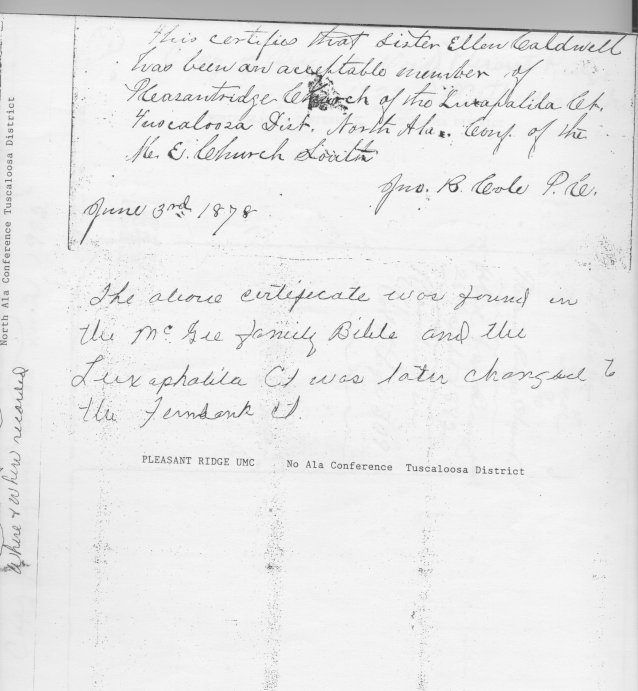 This certifies that Sister Ellen Caldwell
has been an acceptable member of
Pleasantridge Church of the Luxapalila Ct.
Tuscaloosa Dist. North Ala. Conf. of the
M. E. Church South
Jno. B. Cole P. C.
June 3rd 1878
The above certificate was found in
the Mc Gee family Bible and the
Luxaphalila Ct was later changed to
the Fernbank Ct.
PLEASANT RIDGE UMC No Ala Conference Tuscaloosa District
North Ala Conference Tuscaloosa District
Where & When recorded